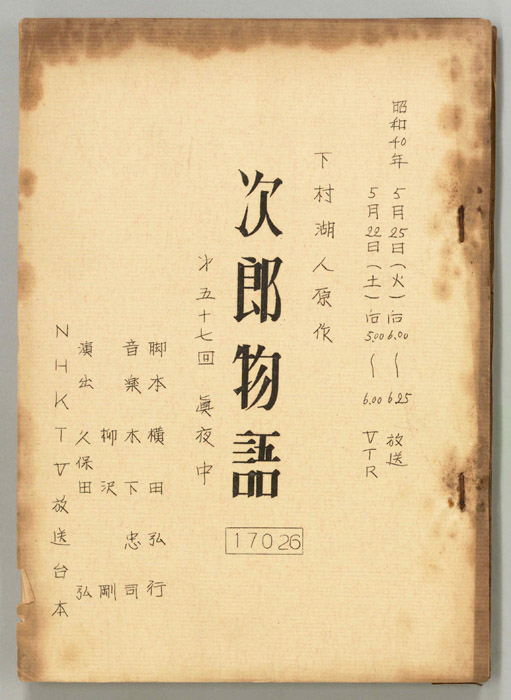 昭和40年 5月25日(火)后6.00〜6.25 放送
5月22日(土)后5.00〜6.00 VTR
下村湖人原作
次郎物語
才五十七回 眞夜中
脚本 横田弘行
音楽 木下忠司
柳沢 剛
演出 久保田 弘
NHKTV放送台本
17026